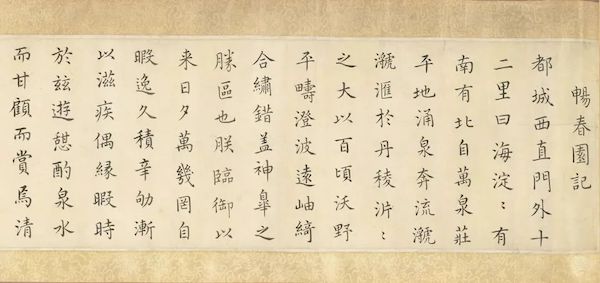 暢春園記
都城西直門外十
二里曰海淀〻有
南有北自萬泉莊
平地涌泉奔流㶁
㶁滙於丹稜沜〻
之大以百頃沃野
平疇澄波遠岫綺
合繡錯盖神皐之
勝區也朕臨御以
来日夕萬幾罔自
暇逸久積辛劬漸
以滋疾偶緣暇時
於玆遊憩酌泉水
而甘顧而賞焉清